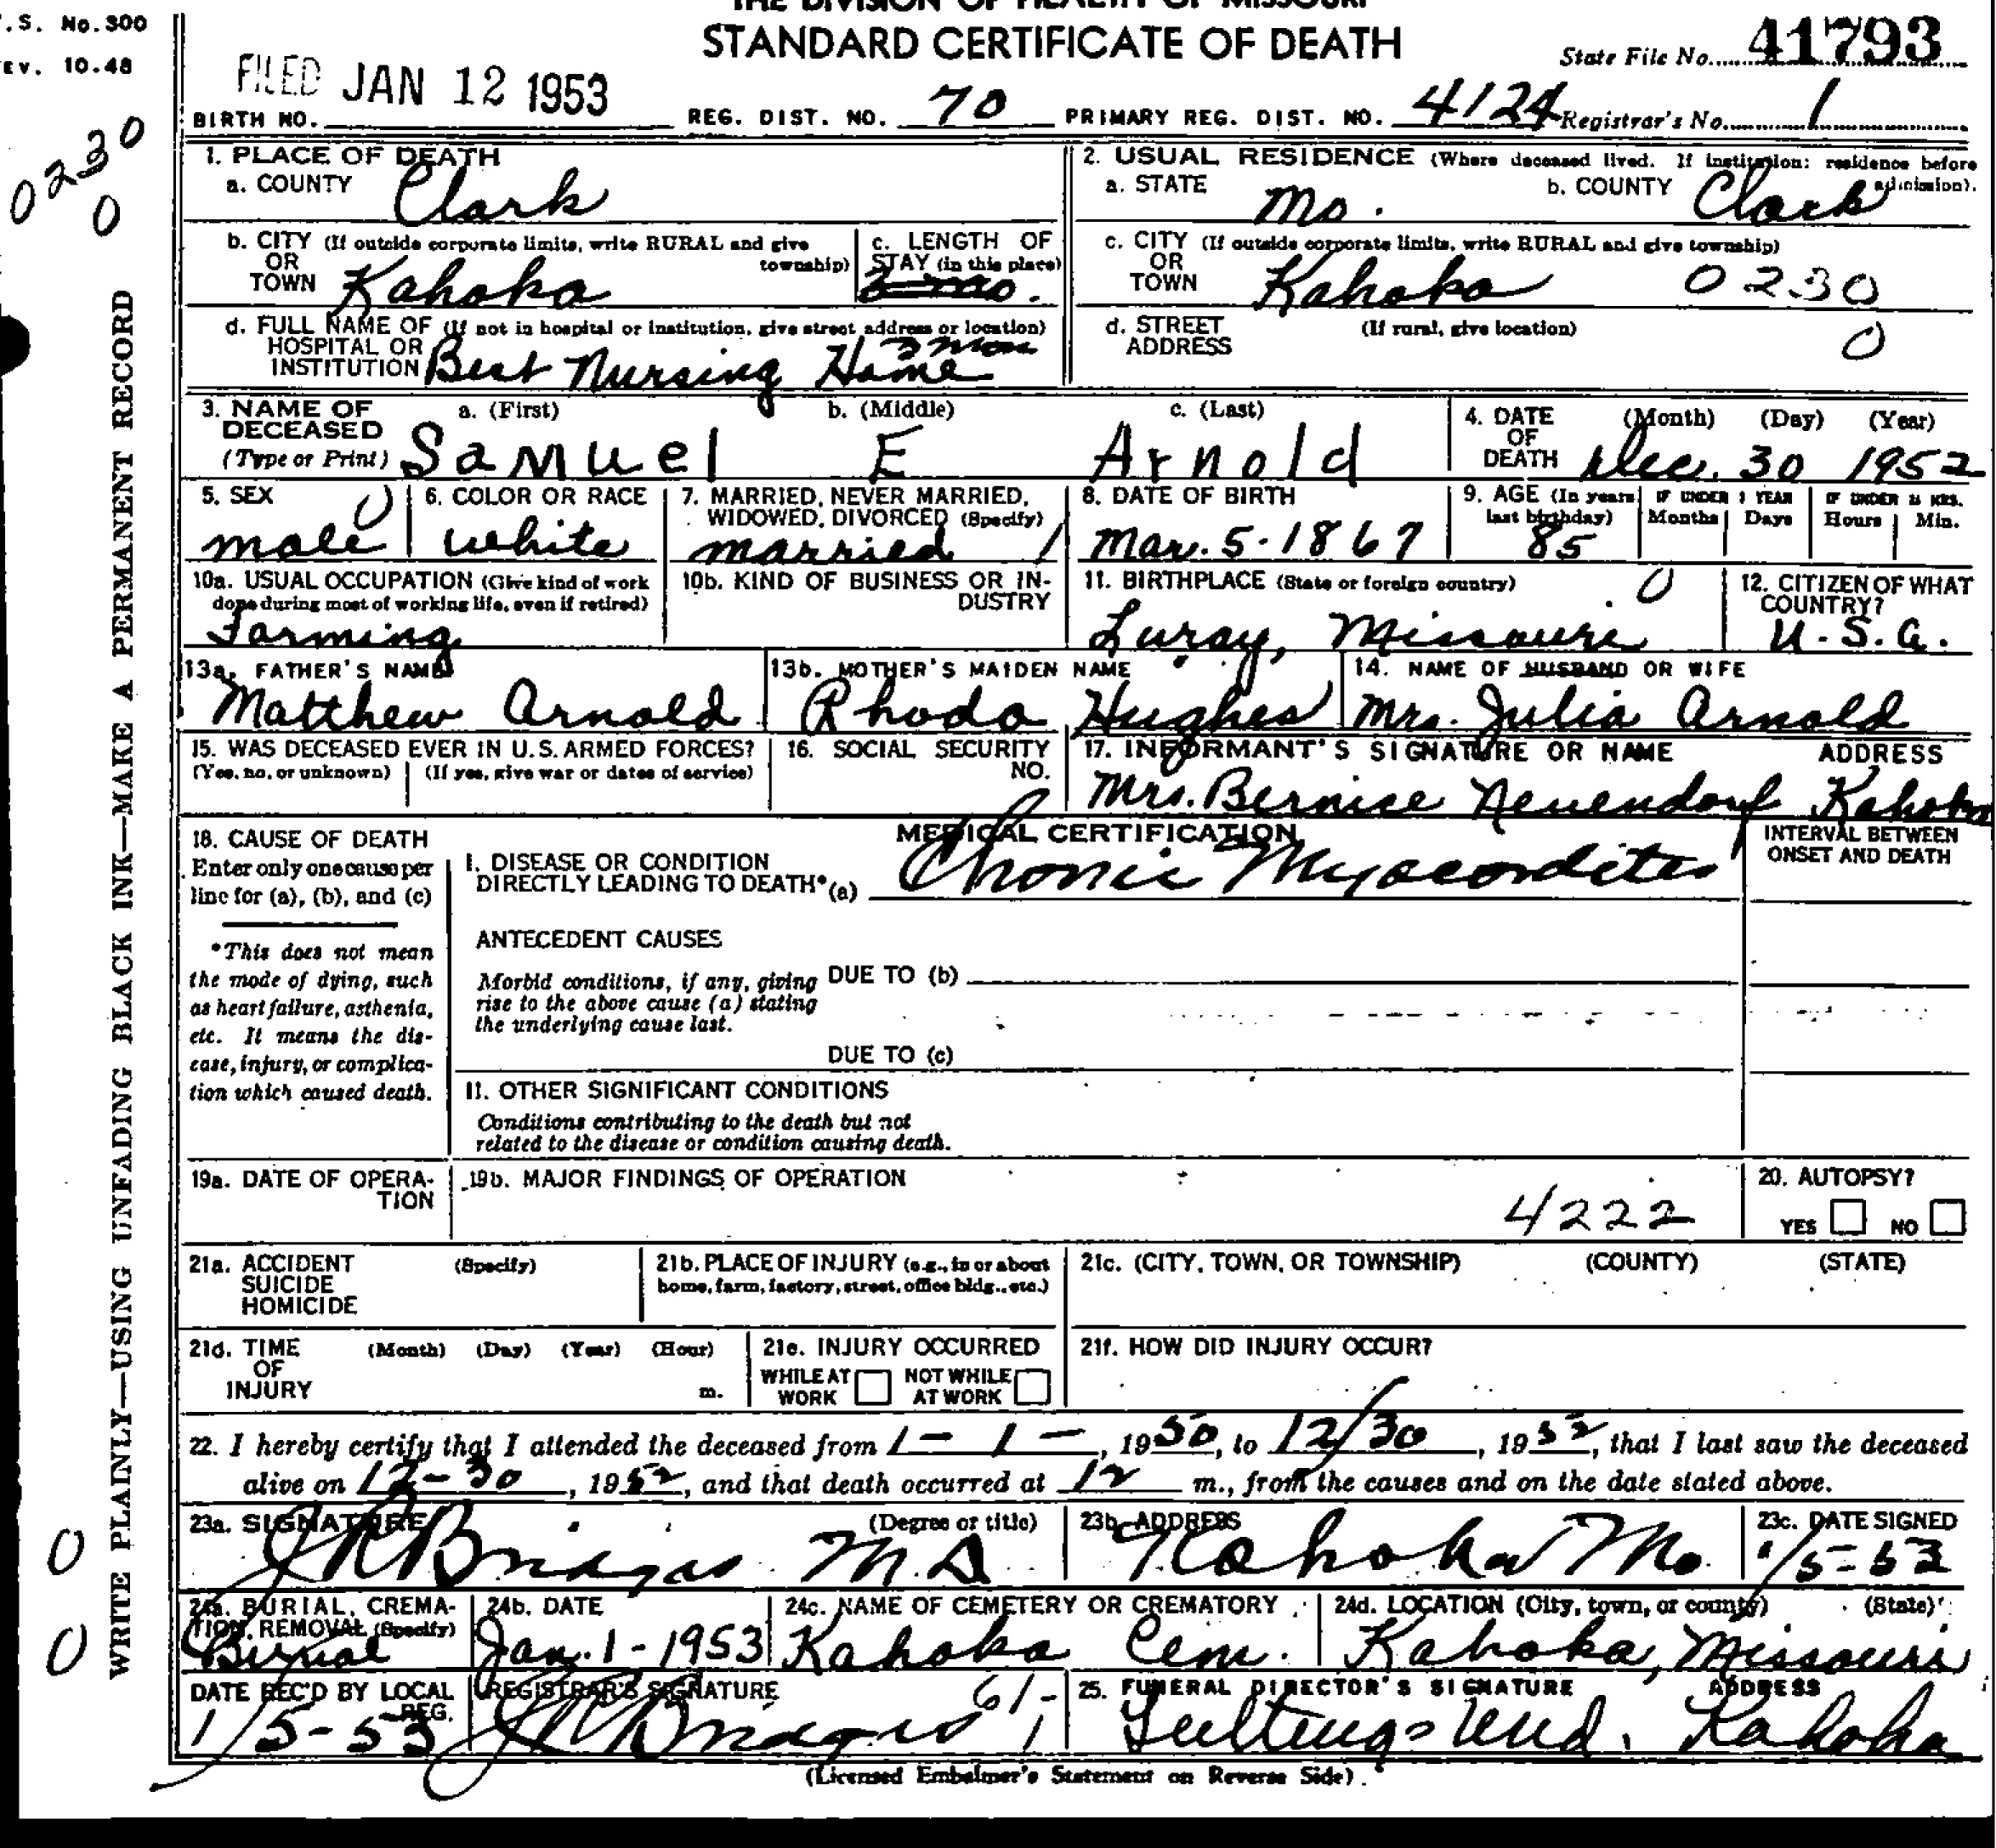 THE DIVISION OF HEALTH OF MISSOURI
STANDARD CERTIFICATE OF DEATH
.S. No. 300
EV. 10.48
FILED JAN 12 1953
State File No. 41793
BIRTH NO. REG. DIST. NO. 70 PRIMARY REG. DIST. NO. 4124 Registrar's No. 1
0230
0
WRITE PLAINLY—USING UNFADING BLACK INK—MAKE A PERMANENT RECORD
1. PLACE OF DEATH
a. COUNTY Clark
2. USUAL RESIDENCE (Where deceased lived. If institution: residence before admission).
a. STATE Mo. b. COUNTY Clark
b. CITY (If outside corporate limits, write RURAL and give township) OR TOWN Kahoka
c. LENGTH OF STAY (in this place) mo.
c. CITY (If outside corporate limits, write RURAL and give township) OR TOWN Kahoka 0230
d. FULL NAME OF HOSPITAL OR INSTITUTION (If not in hospital or institution, give street address or location) Best Nursing Home
d. STREET ADDRESS (If rural, give location) 0
3. NAME OF DECEASED (Type or Print) a. (First) Samuel b. (Middle) E c. (Last) Arnold
4. DATE OF DEATH (Month) (Day) (Year) Dec. 30 1952
5. SEX male 0
6. COLOR OR RACE white
7. MARRIED, NEVER MARRIED, WIDOWED, DIVORCED (Specify) married 1
8. DATE OF BIRTH Mar. 5-1867
9. AGE (In years last birthday) 85 IF UNDER 1 YEAR Months Days IF UNDER 24 HRS. Hours Min.
10a. USUAL OCCUPATION (Give kind of work done during most of working life, even if retired) Farming
10b. KIND OF BUSINESS OR INDUSTRY
11. BIRTHPLACE (State or foreign country) 0 Luray, Missouri
12. CITIZEN OF WHAT COUNTRY? U.S.A.
13a. FATHER'S NAME Matthew Arnold
13b. MOTHER'S MAIDEN NAME Rhoda Hughes
14. NAME OF HUSBAND OR WIFE Mrs. Julia Arnold
15. WAS DECEASED EVER IN U.S. ARMED FORCES? (Yes, no, or unknown) (If yes, give war or dates of service)
16. SOCIAL SECURITY NO.
17. INFORMANT'S SIGNATURE OR NAME ADDRESS
Mrs. Bernice Neuendorf Kahoka
18. CAUSE OF DEATH
Enter only one cause per line for (a), (b), and (c)
*This does not mean the mode of dying, such as heart failure, asthenia, etc. It means the disease, injury, or complication which caused death.
MEDICAL CERTIFICATION
INTERVAL BETWEEN ONSET AND DEATH
I. DISEASE OR CONDITION DIRECTLY LEADING TO DEATH* (a) Chonic Myocorditis
ANTECEDENT CAUSES
Morbid conditions, if any, giving rise to the above cause (a) stating the underlying cause last.
DUE TO (b)
DUE TO (c)
II. OTHER SIGNIFICANT CONDITIONS
Conditions contributing to the death but not related to the disease or condition causing death.
19a. DATE OF OPERATION
19b. MAJOR FINDINGS OF OPERATION
4222
20. AUTOPSY?
YES NO
21a. ACCIDENT SUICIDE HOMICIDE (Specify)
21b. PLACE OF INJURY (e.g., in or about home, farm, factory, street, office bldg., etc.)
21c. (CITY, TOWN, OR TOWNSHIP) (COUNTY) (STATE)
21d. TIME OF INJURY (Month) (Day) (Year) (Hour) m.
21e. INJURY OCCURRED WHILE AT WORK NOT WHILE AT WORK
21f. HOW DID INJURY OCCUR?
22. I hereby certify that I attended the deceased from 1-1-, 1950, to 12/30, 1952, that I last saw the deceased
alive on 12-30, 1952, and that death occurred at 12 m., from the causes and on the date stated above.
23a. SIGNATURE (Degree or title) JR Bridges M.D.
23b. ADDRESS Kahoka Mo.
23c. DATE SIGNED 1/5-53
24a. BURIAL, CREMATION, REMOVAL (Specify) Burial
24b. DATE Jan. 1-1953
24c. NAME OF CEMETERY OR CREMATORY Kahoka Cem.
24d. LOCATION (City, town, or county) (State) Kahoka, Missouri
DATE REC'D BY LOCAL REG. 1/5-53
REGISTRAR'S SIGNATURE JR Bridges 61-1
25. FUNERAL DIRECTOR'S SIGNATURE ADDRESS
Kahoka
0
0
(Licensed Embalmer's Statement on Reverse Side)